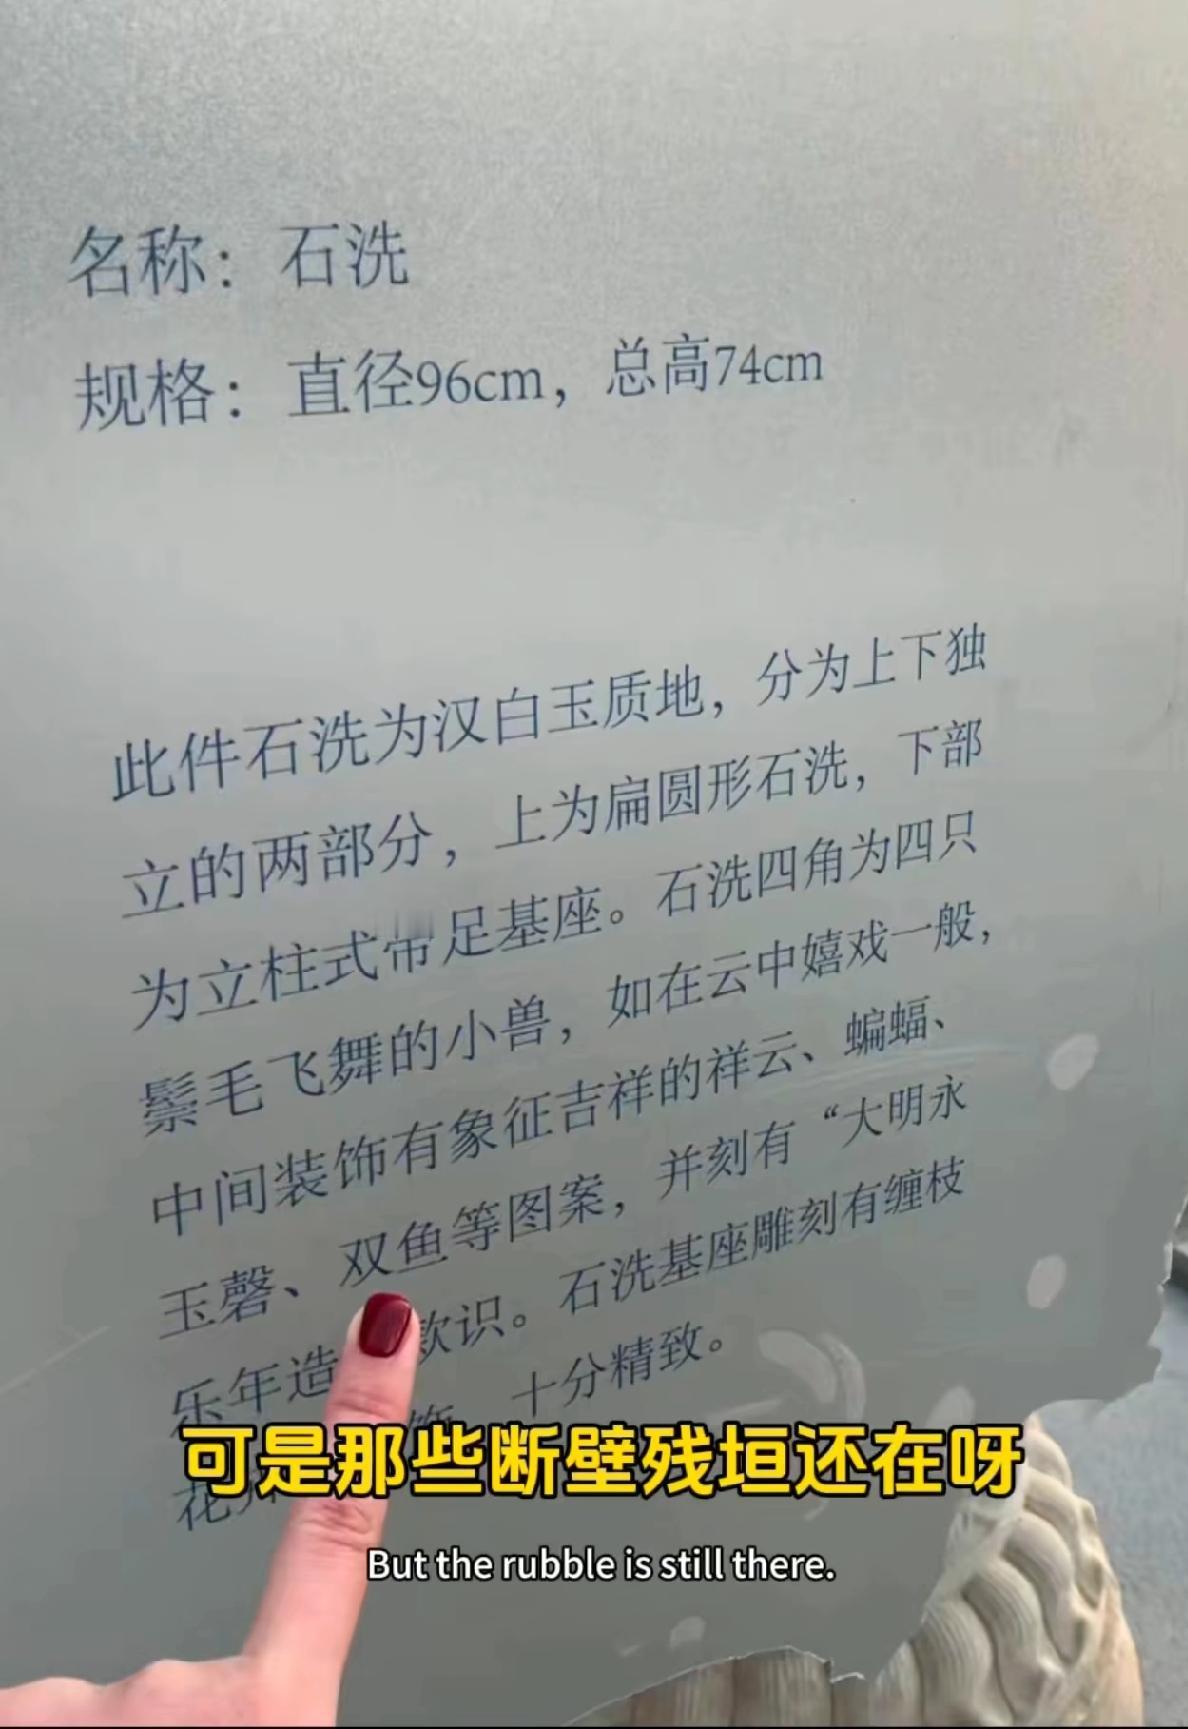 名称：石洗
规格：直径96cm，总高74cm
此件石洗为汉白玉质地，分为上下独
立的两部分，上为扁圆形石洗，下部
为立柱式带足基座。石洗四角为四只
鬃毛飞舞的小兽，如在云中嬉戏一般，
中间装饰有象征吉祥的祥云、蝙蝠、
玉磬、双鱼等图案，并刻有“大明永
乐年造 款识。石洗基座雕刻有缠枝
花 饰，十分精致。
可是那些断壁残垣还在呀
But the rubble is still there.